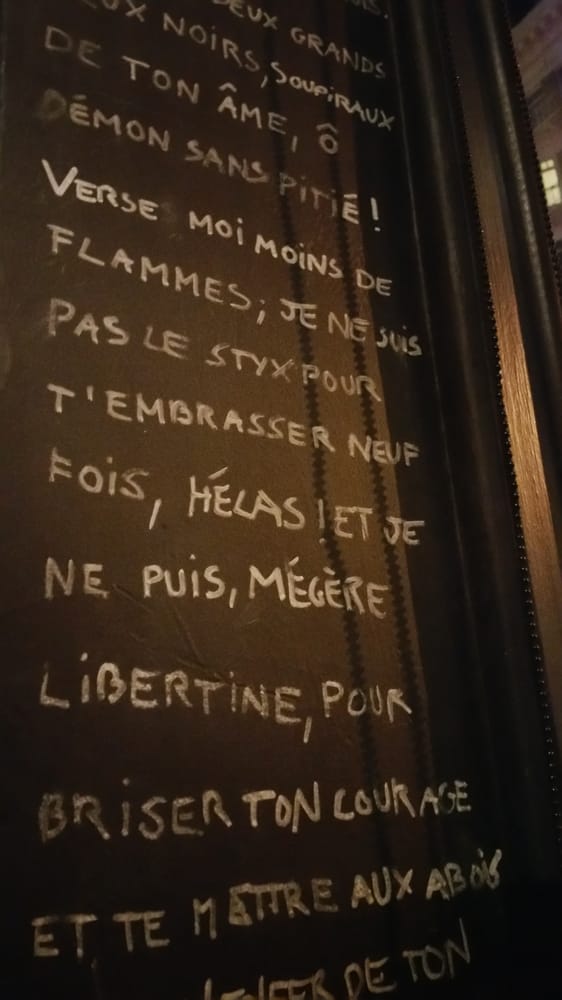 DEUX GRANDS
YEUX NOIRS, SOUPIRAUX
DE TON ÂME, Ô
DÉMON SANS PITIÉ!
VERSE MOI MOINS DE
FLAMMES; JE NE SUIS
PAS LE STYX POUR
T'EMBRASSER NEUF
FOIS, HÉLAS! ET JE
NE PUIS, MÉGÈRE
LIBERTINE, POUR
BRISER TON COURAGE
ET TE METTRE AUX ABOIS
L'ENFER DE TON